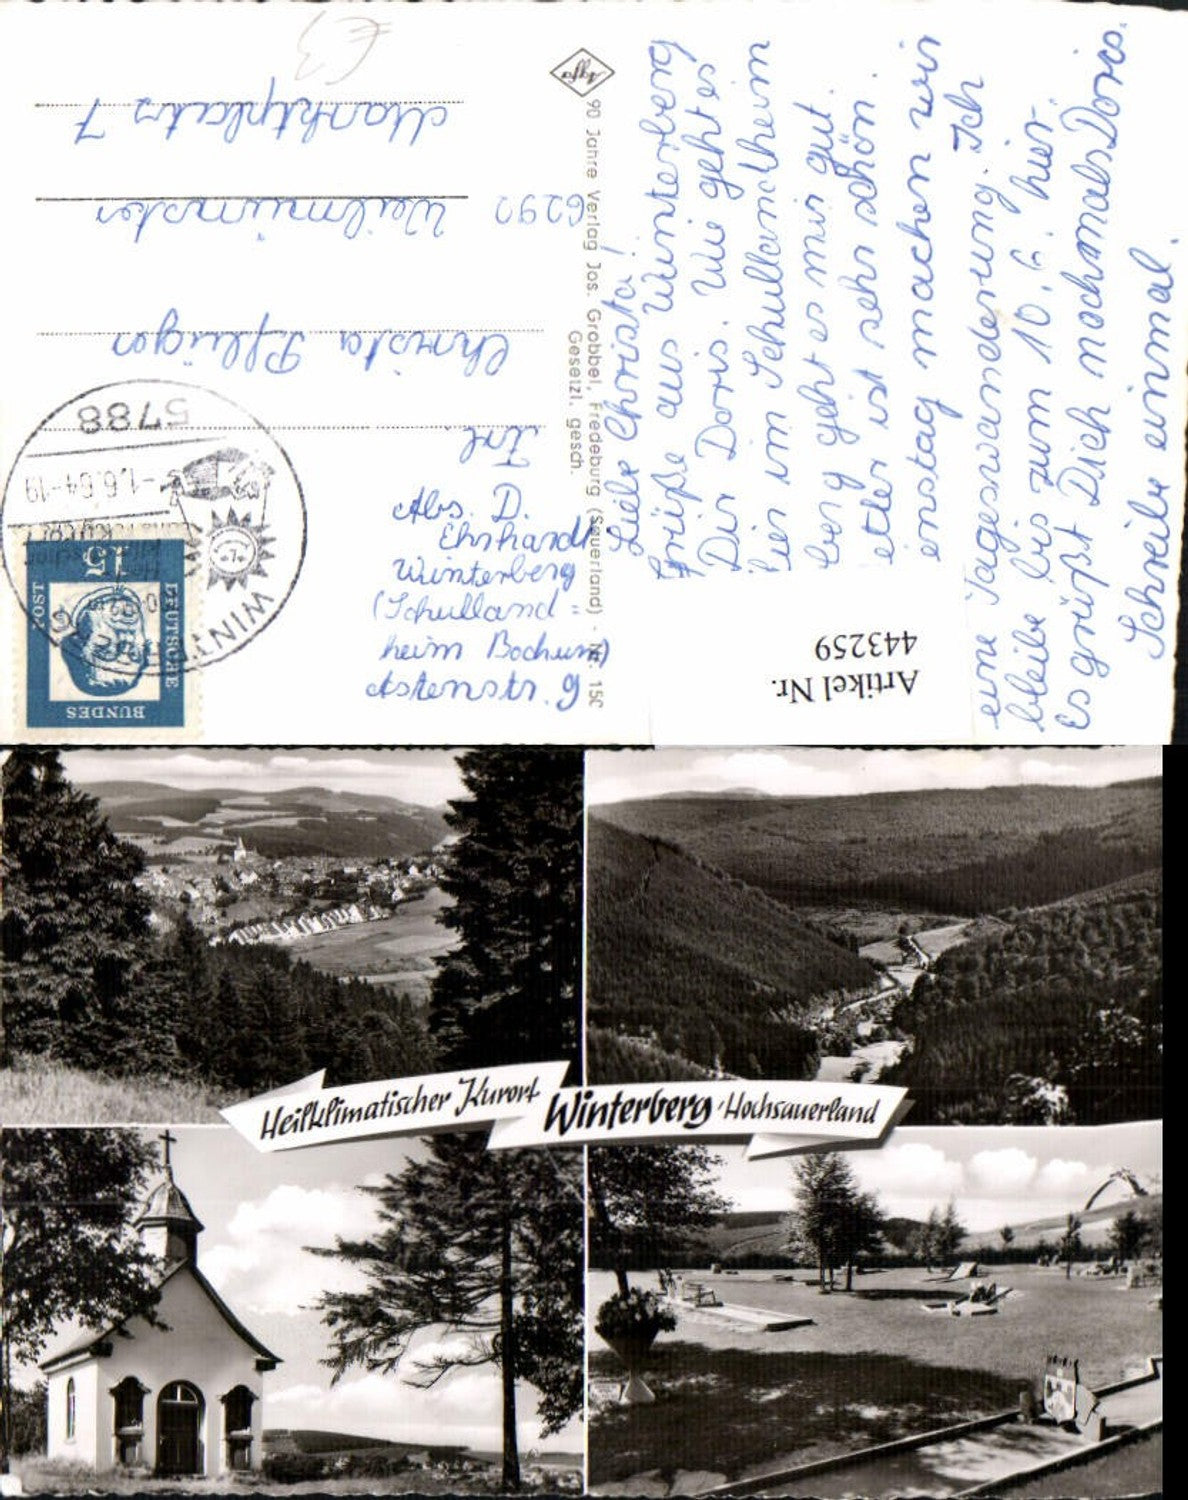 Liebe Christa!
Grüße aus Winterberg
Dir Doris. Wie geht es
hier im Schullandheim
berg geht es mir gut.
etter ist sehr schön.
enstag machen wir
eine Tageswanderung. Ich
bleibe bis zum 10.6. hier.
Es grüßt Dich nochmals Doris.
Schreibe einmal.
Artikel Nr.
443259
Agfa
90 Jahre Verlag Jos. Grobbel, Fredeburg (Sauerland) · Nr. 150
Gesetzl. gesch.
Abs. D.
Ehrhardt
Winterberg
(Schulland=
heim Bochum)
Astenstr. 9
Frl.
Christa Pflüger
6290 Weilmünster
Marktplatz 7
€3
5788
-1.6.64-19
WINTERBERG
15
DEUTSCHE
BUNDES
POST
Heilklimatischer Kurort Winterberg, Hochsauerland